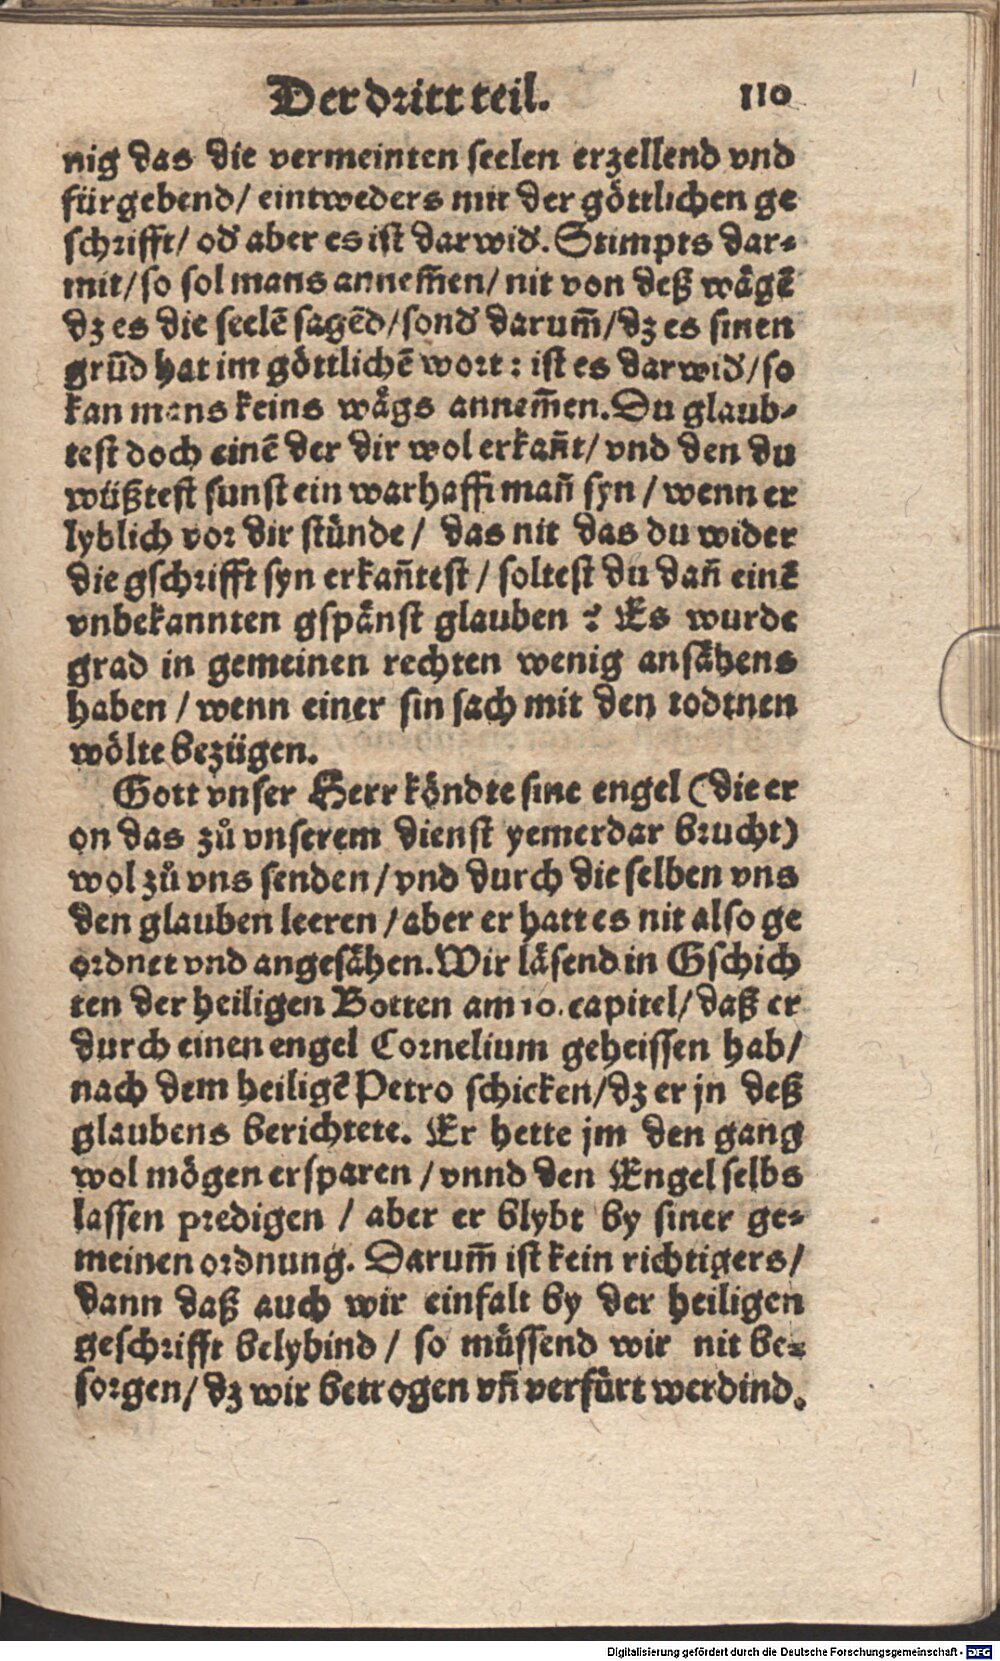 Der dritt teil. 110
nig das die vermeinten seelen erzellend vnd
fürgebend/ eintweders mit der göttlichen ge
schrifft/ od̕ aber es ist darwid̕. Stimpts dar-
mit/ so sol mans annem̄en/ nit von deß wägē
dz es die seelē sagēd/ sond̕ darum̄/ dz es sinen
grūd hat im göttlichē wort: ist es darwid̕/ so
kan mans keins wägs annem̄en. Du glaub-
test doch einē der dir wol erkan̄t/ vnd den du
wüßtest sunst ein warhafft man̄ syn/ wenn er
lyblich vor dir stünde/ das nit das du wider
die gschrifft syn erkan̄test/ soltest du dan̄ einē
vnbekannten gspänst glauben? Es wurde
grad in gemeinen rechten wenig ansähens
haben/ wenn einer sin sach mit den todtnen
wölte bezügen.
Gott vnser Herr köndte sine engel (die er
on das zů vnserem dienst yemerdar brucht)
wol zů vns senden/ vnd durch die selben vns
den glauben leeren/ aber er hatt es nit also ge
ordnet vnd angesähen. Wir läsend in Gschich
ten der heiligen Botten am 10. capitel/ daß er
durch einen engel Cornelium geheissen hab/
nach dem heiligē Petro schicken/ dz er jn deß
glaubens berichtete. Er hette jm den gang
wol mögen ersparen/ vnnd den Engel selbs
lassen predigen/ aber er blybt by siner ge-
meinen ordnung. Darum̄ ist kein richtigers/
dann daß auch wir einfalt by der heiligen
geschrifft belybind/ so müssend wir nit be-
sorgen/ dz wir betrogen vn̄ verfürt werdind.
Digitalisierung gefördert durch die Deutsche Forschungsgemeinschaft - DFG